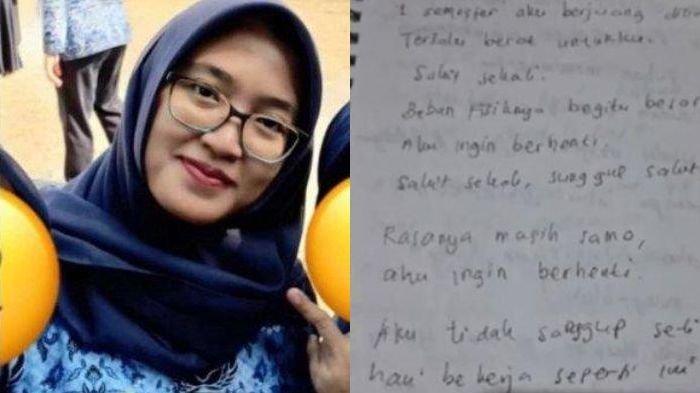 1 semester aku berjuang
Terlalu berat untukku.
Sakit sekali.
Beban fisiknya begitu besar
Aku ingin berhenti.
Sakit sekali, sungguh sakit
Rasanya masih sama,
aku ingin berhenti.
Aku tidak sanggup
hari bekerja seperti ini